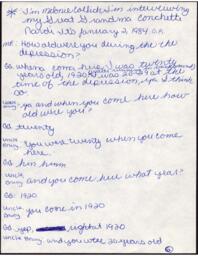 * I'm Melanie Collichio I'm interviewing
my Great Grandma Conchetti
Nardi. It's January 2, 1984, O.K.
me: How old were you during the
depression?
GG: When I come here, I was twenty
years old, 1920, I was 20
the time of the depression, yes I think
so
uncle Tony: ya and when you come here how
old were you?
GG twenty
uncle Tony: You were twenty when you come
here.
GG: hm hmm
uncle Tony: and you come here what year?
GG: 1920
uncle Tony: you come in 1920
GG: yep, right at 1920
uncle Tony: and you were 20 years old
6